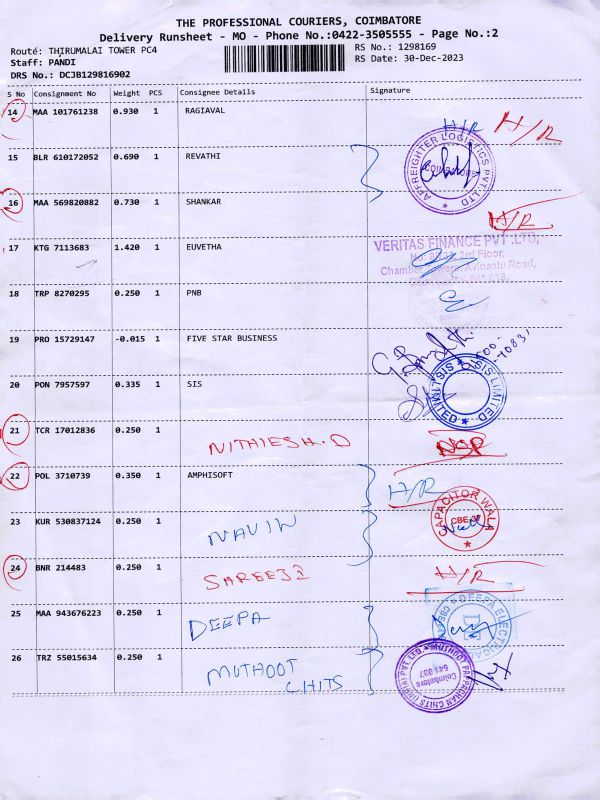 THE PROFESSIONAL COURIERS, COIMBATORE
Delivery Runsheet - MO - Phone No.:0422-3505555 - Page No.:2
Routé: THIRUMALAI TOWER PC4
RS No.: 1298169
Staff: PANDI
RS Date: 30-Dec-2023
DRS No.: DCJB129816902
S No Consignment No Weight PCS Consignee Details Signature
14 MAA 101761238 0.930 1 RAGIAVAL
H/R H/R
15 BLR 610172052 0.690 1 REVATHI
AFFREIGHTER LOGISTICS PVT. LTD
COIMBATORE
16 MAA 569820882 0.730 1 SHANKAR
H/R
17 KTG 7113683 1.420 1 EUVETHA
VERITAS FINANCE PVT .LTD,
3rd Floor,
Avinashi Road,
18 TRP 8270295 0.250 1 PNB
19 PRO 15729147 -0.015 1 FIVE STAR BUSINESS
20 PON 7957597 0.335 1 SIS
SIS LIMITED
21 TCR 17012836 0.250 1
NITHIESH.D
22 POL 3710739 0.350 1 AMPHISOFT
H/R
23 KUR 530837124 0.250 1
NAVIN
CAPACITOR WALA
CBE-37
24 BNR 214483 0.250 1
H/R
25 MAA 943676223 0.250 1
DEEPA
DEEPA ELECTRICAL
26 TRZ 55015634 0.250 1
MUTHOOT
CHITS
MUTHOOT PAPPACHAN CHITS (INDIA) PVT. LTD.
Coimbatore
641 037